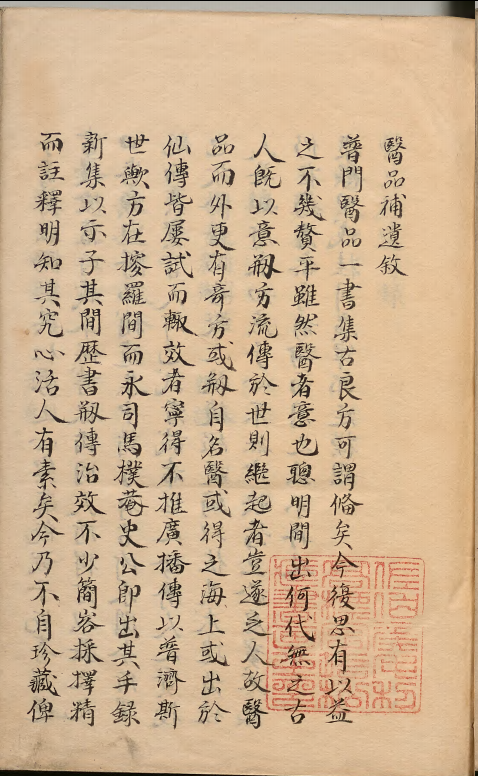 醫品補遺敘
普門醫品一書集古良方可謂俻矣今復思有以益
之不幾贅乎雖然醫者意也聰明間出何代無之古
人既以意剏方流傳於世則繼起者豈遂乏人故醫
品而外更有奇方或剏自名醫或得之海上或出於
仙傳皆屢試而輙效者寧得不推廣播傳以普濟斯
世歟方在搜羅間而永司馬樸菴史公即出其手録
新集以示予其間歷書剏傳治效不少簡咨採擇精
而註釋明知其究心活人有素矣今乃不自珍藏俾